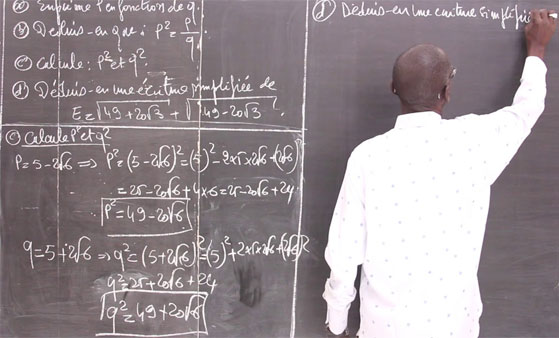 a) Exprime P en fonction de q.
b) Déduis-en que : P² = P/q.
c) Calcule : P² et q².
d) Déduis-en une écriture simplifiée de
E = √49+20√3 + √49-20√3.
c) Calcule P² et q²
P = 5-2√6 ⟹ P² = (5-2√6)² = (5)² - 2×5×2√6 + (2√6)²
= 25-20√6+4×6 = 25-20√6+24
P² = 49-20√6
q = 5+2√6 ⟹ q² = (5+2√6)² = (5)² + 2×5×2√6 + (2√6)²
q² = 25+20√6+24
q² = 49+20√6
d) Déduis-en une écriture simplifi